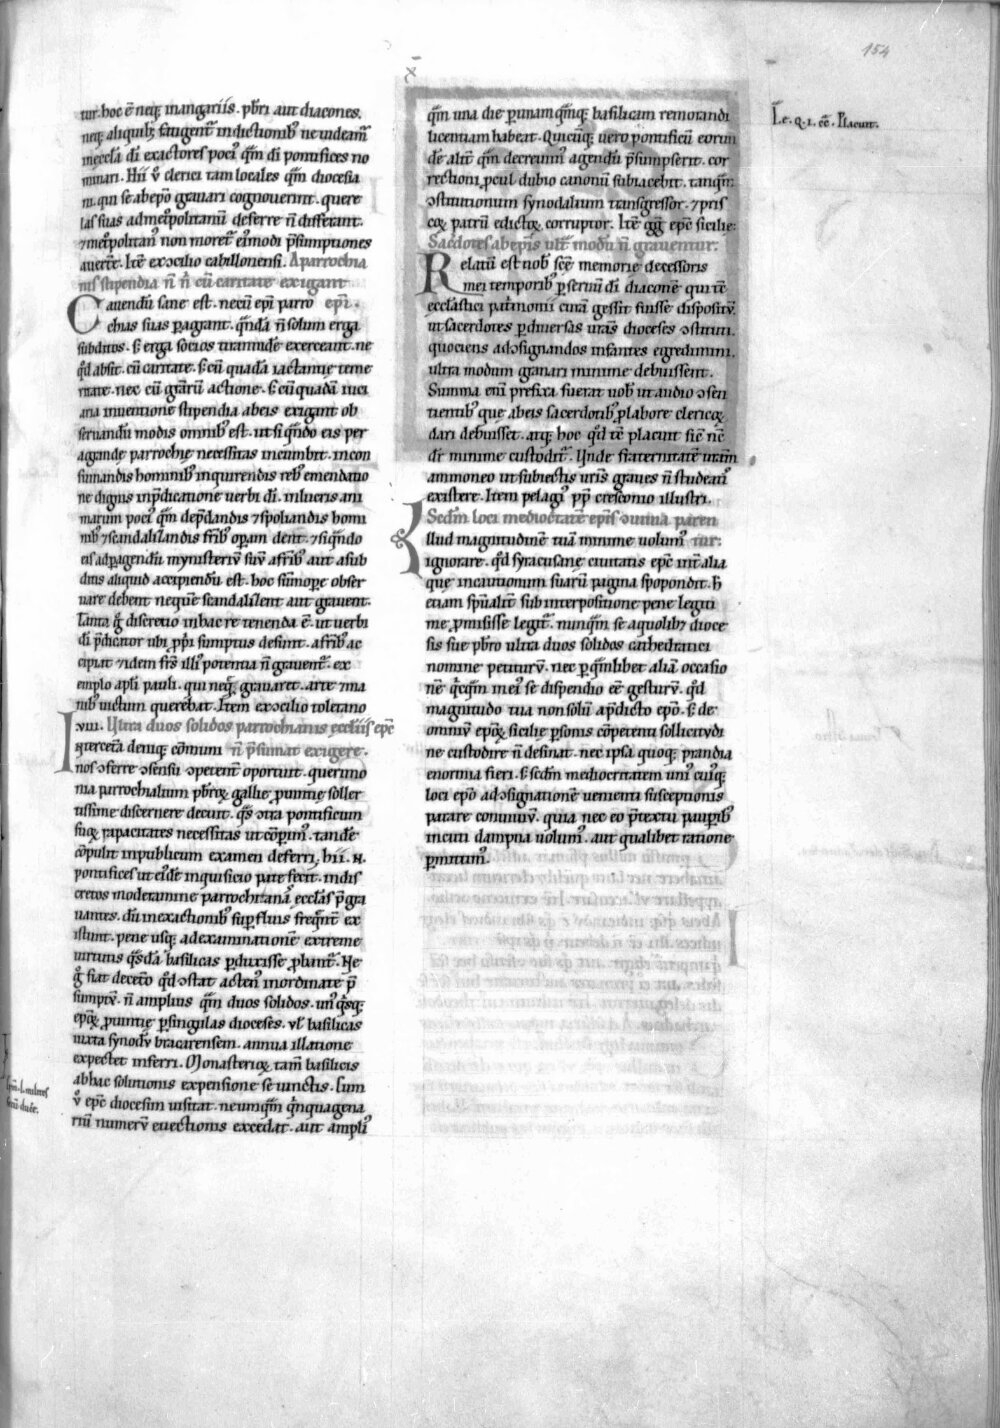 154
tur. hoc ē neq; in angariis. pbri aut diacones.
neq; aliquib; fatigent̄ indictionib; ne videam̄
in eccla dī exactores poci᷒ qm̄ dī pontifices no
minari. Hii ỡ clerici tam locales qm̄ diocesa
ni. qui se ab epō gravari cognoverint. quere
las suas ad metpolitanū deferre n̄ differant.
⁊ metpolitan᷒ non moret᷑ ei᷒modi p̄sumptiones
avert̄e. Itē ex ɔcilio cabillonensi. A parrochia
nis stipendia n̄ n̄ cū caritate exigant
Cavendū sane est. ne cū epi parro epi.
chias suas pagrant. qndā n̄ solum erga
subditos. s; erga socios tirannidē exerceant. ne
qd absit. cū caritate. s; cū quadā iactantie teme
ritate. nec cū grarū actione. s; cū quadā iudici
aria inventione stipendia ab eis exigant ob
servandū modis omnib; est. ut siqn̄do eis per
agrande parrochię necessitas incumbit. in con
firmandis hominib; inquirendis reb; emendatio
ne dignis in pdicatione verbi dī. in lucris ani
marum poci᷒ qm̄ depdandis ⁊ spoliandis homi
nib; ⁊ scandalizandis frib; opam dent. ⁊ siqn̄do
eis ad pagendū mynisteriū suū a frib; aut a sub
ditis aliquid accipiendū est. hoc sūmope obser
vare debent ne quēq; scandalizent aut gravent.
Tanta g̊ discretio in hac re tenenda ē. ut verbi
dī pdicator ubi pprii sumptus desunt. a frib; ac
cipiat ⁊ idem frs illi᷒ potentia n̄ gravent̄. ex
emplo apli pauli. qui ne q̄q; gravaret. arte ⁊ ma
nib; victum querebat. Item ex ɔcilio toletano
.viii. Ultra duos solidos parrochianis eccliis epc
n̄ psumat exigere.
Inter cetera deniq; cōmuni
nos ɔferre ɔsensu opetent oportuit. querimo
nia parrochialium pbroꝝ gallię provintię soller
tissime discernere decuit. qs ɔtra pontificum
suoꝝ rapacitates necessitas ut cōpim᷒. tandē
cōpulit in publicum examen deferri. hii. n.
pontifices ut eidē inquisicio pate fecit. indis
creto moderamine parrochitanā ecclās p̄gra
vantes. dū in exactionib; supfluis freq̄nt̄ ex
istunt. pene usq; ad examinationē extreme
virtutis qsdā basilicas pduxisse pbant̄. Ne
g̊ fiat decet̄o qd ɔstat acten᷒ inordinate p̄
sumptū. n̄ amplius qm̄ duos solidos. un᷒ q̄sq;
epoꝝ provintię p singulas dioceses. vl basilicas
iuxta synodū bracarensem. annua illatione
expectet inferri. Monasterioꝝ tam̄ basilicis
ab hac solutionis expensione seiunctis. Cum
ỡ epc diocesim visitat. ne unqm̄ q̄nquagena
riū numerū evectionis excedat. aut ampli᷒
qm̄ una die p unam quāq; basilicam remorandi
licentiam habeat. Quicūq; vero pontificū eorum
dē alit̄ qm̄ decrevim᷒ agendū p̄sumpserit. cor
rectioni pcul dubio canonū subiacebit. tanqm̄
ɔstitutionum synodalium transgressor. ⁊ pris
coꝝ patrū edictoꝝ. corruptor. Itē gg epc sicilie.
Sacdotes ab epis ult modū n̄ graventur.
Relatū est nob scę memorie decessoris
mei temporib; p servū dī diaconē qui te
ecclastici patmonii curā gessit fuisse dispositū.
ut sacerdotes p diversas vras dioceses ɔstituti.
quociens ad ɔsignandos infantes egredimini.
ultra modum gravari minime debuissent.
Summa eni prefixa fuerat vob ut audio ɔsen
tientib; que ab eis sacerdotib; p labore clericoꝝ
dari debuisset. atq; hoc qd tē placuit sic nē
dr minime custodit̄. Unde fraternitatē vram
ammoneo ut subiectis vris graves n̄ studeati᷒
existere. Item pelagi᷒ pp cresconio illustri.
Scdm loci mediocitatē epis ɔvivia paren
tur.
Illud magnitudinē tuā minime volum᷒
ignorare. qd syracusanę civitatis epc int alia
que in cautionum suarū pagina spopondit. h
etiam spūalit sub interpositione pene legiti
me pmisisse legit̄. nunqm̄ se a quolib; dioce
sis sue pbro ultra duos solidos cathedratici
nomine petiturū. nec p q̄mlibet aliā occasio
nē q̄cq̄m ei᷒ se dispendio ēē gesturū. qd
magnitudo tua non solū a pdicto epo. s; de
omniū epoꝝ sicilię psonis cōpetenti sollicitudi
ne custodire n̄ desinat. nec ipsa quoq; prandia
enormia fieri. s; scdm mediocritatem uni᷒ cui᷒q;
loci epo ad ɔsignationē venienti susceptionis
parare convivii. quia nec eo p̄textu paupib;
incuti dampna volum᷒. aut qualibet ratione
pmittim᷒.
I.e. q. 1. cc. Placuit.